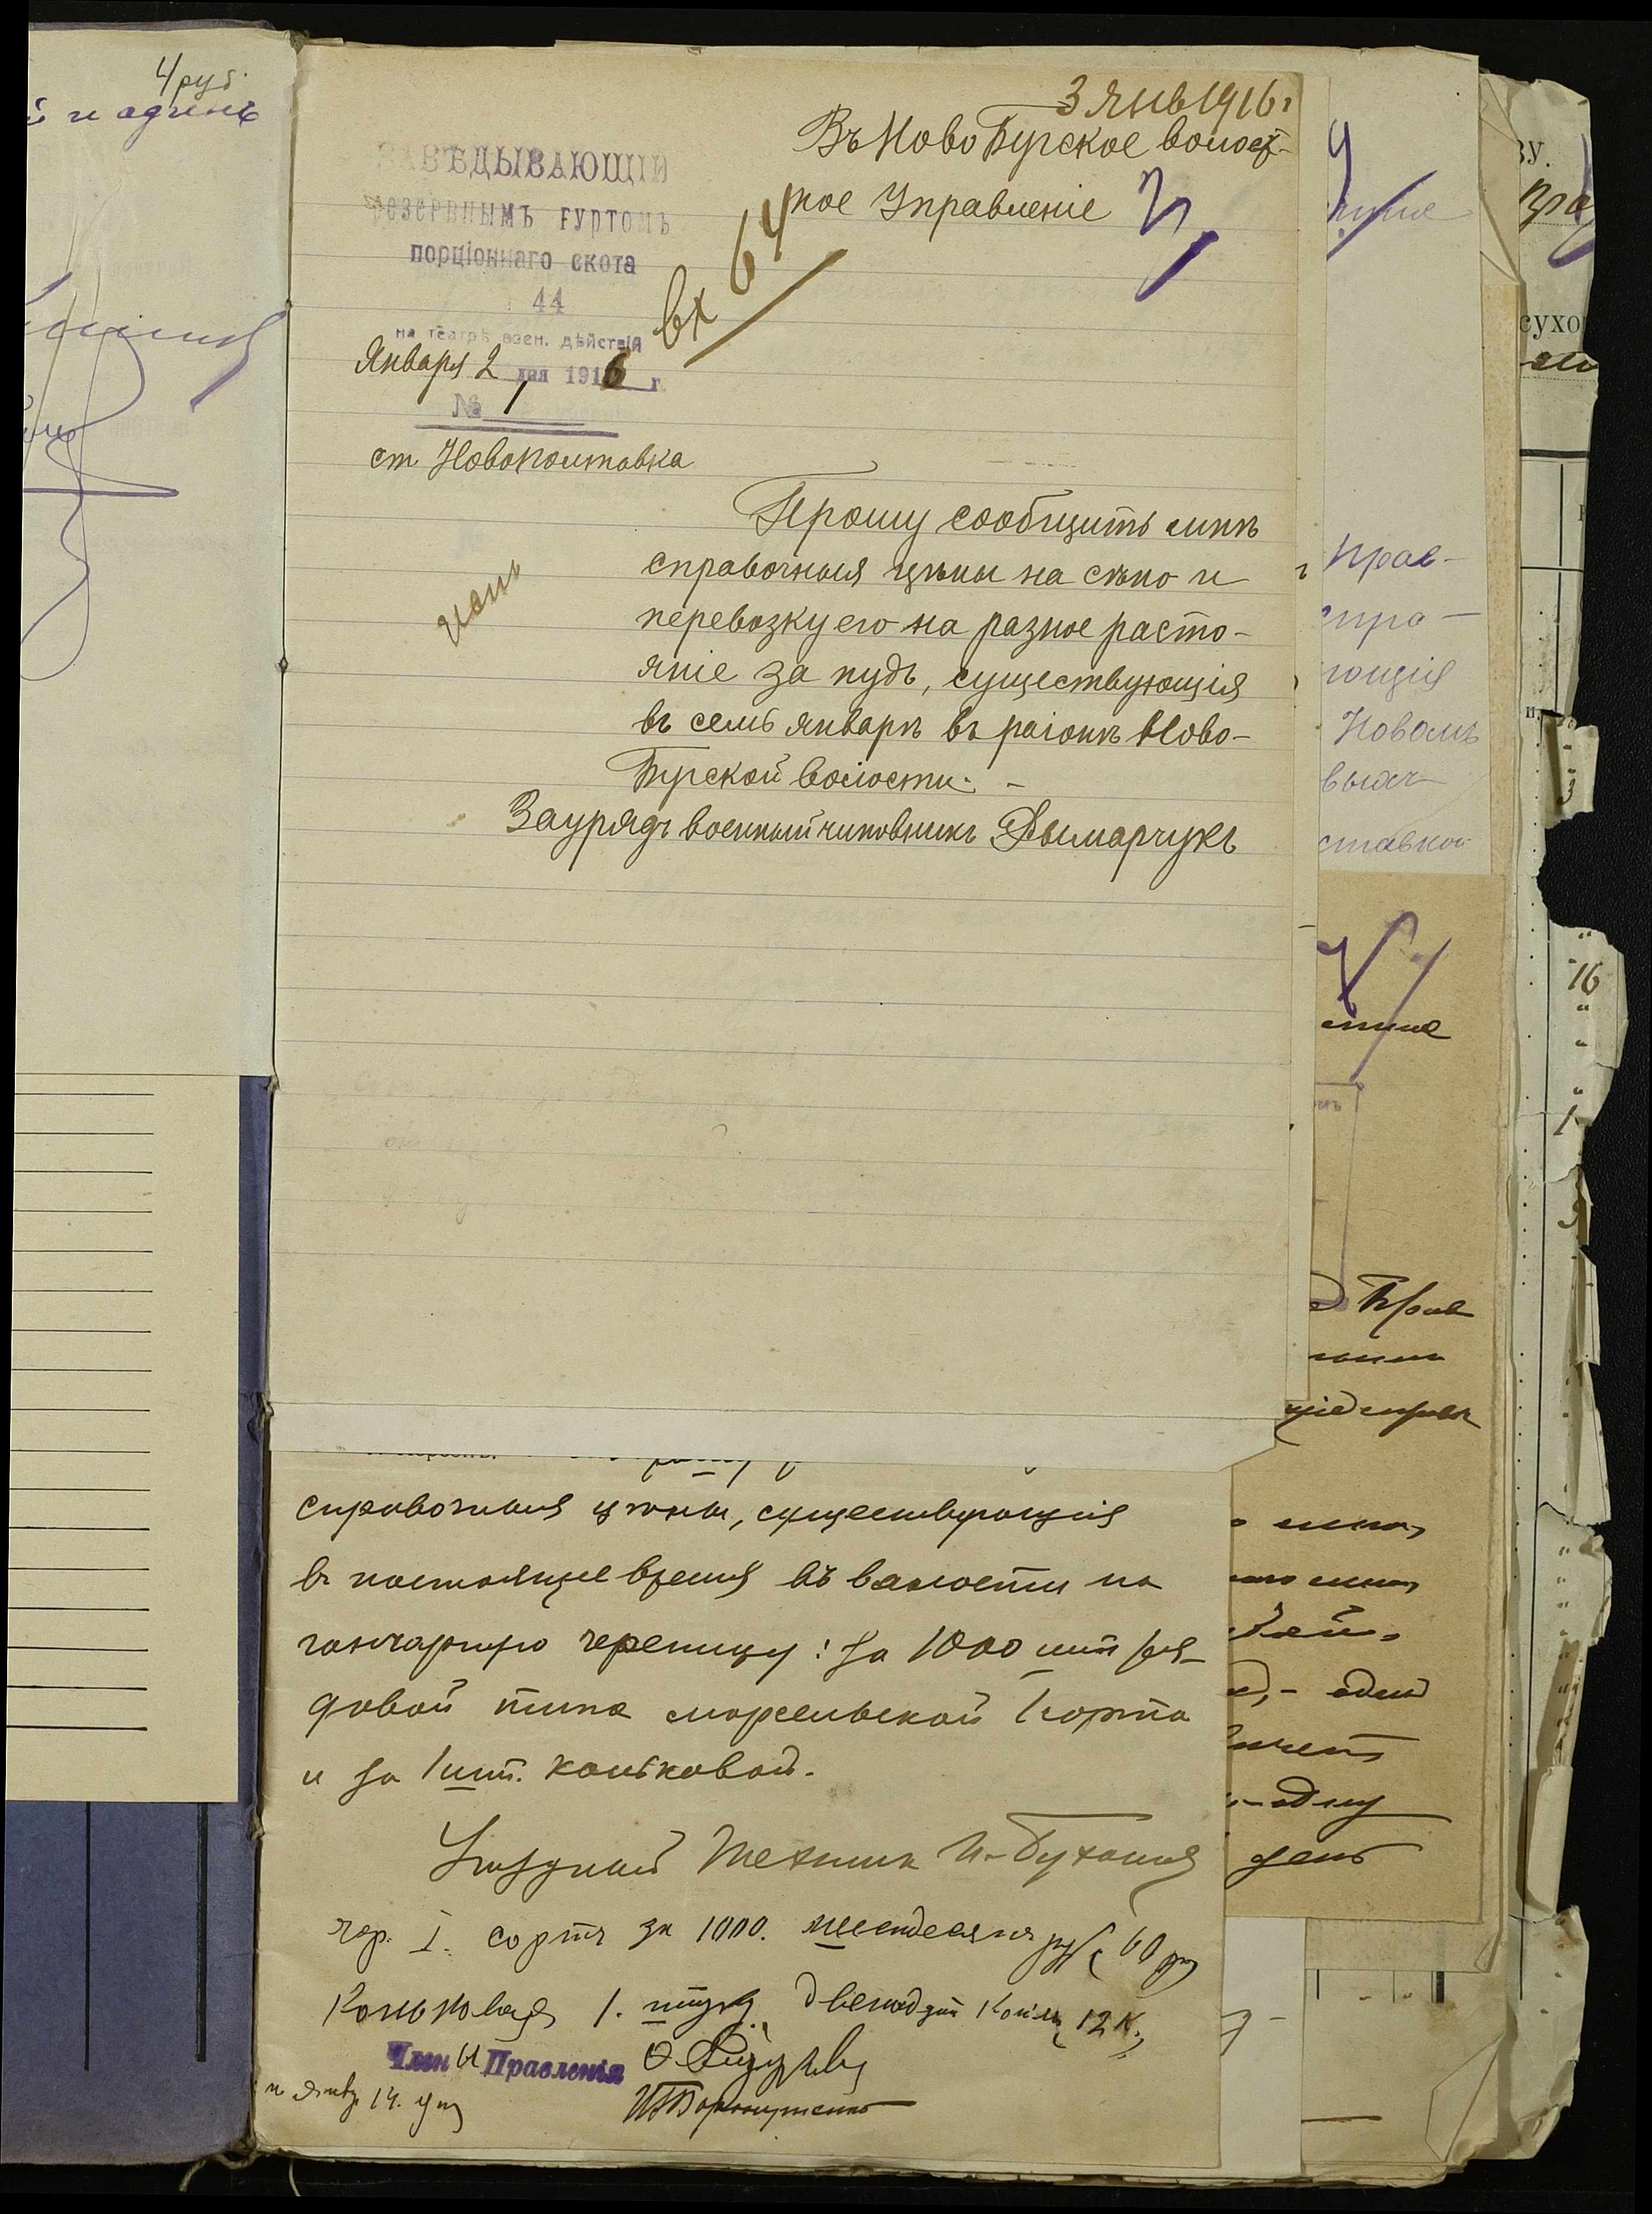 4 руб.
и одинъ
3 Янв 1916 г
Въ Ново Бугское волост-
ное Управленіе
ЗАВѢДЫВАЮЩІЙ
резервнымъ гуртомъ
порціоннаго скота
44
на театрѣ воен. дѣйствія
Января 2 дня 1916 г.
№ 1
вх 64
ст. Новополтавка
Прошу сообщить мнѣ
справочныя цѣны на сѣно и
перевозку его на разное расто-
яніе за пудъ, существующія
въ семъ январѣ въ раіонѣ Ново-
Бугской волости. -
исп
Заурядъ военный чиновникъ Дымарчукъ
справочныя цѣны, существующія
въ настоящее время въ волости на
гончарную черепицу: за 1000 шт ря-
довой типа марсельской 1 сорта
и за 1 шт. коньковой.
Уѣздный Техникъ
чер. I. сортъ за 1000. шестдесятъ руб 60 р
Коньковая 1. штука. двенадцат Копѣк 12 К.
Члены Правленія
Янв. 14. дня
Прав-
спра-
ющія
Новомъ
ставкой
Прав
одну
день
сухо
16
3